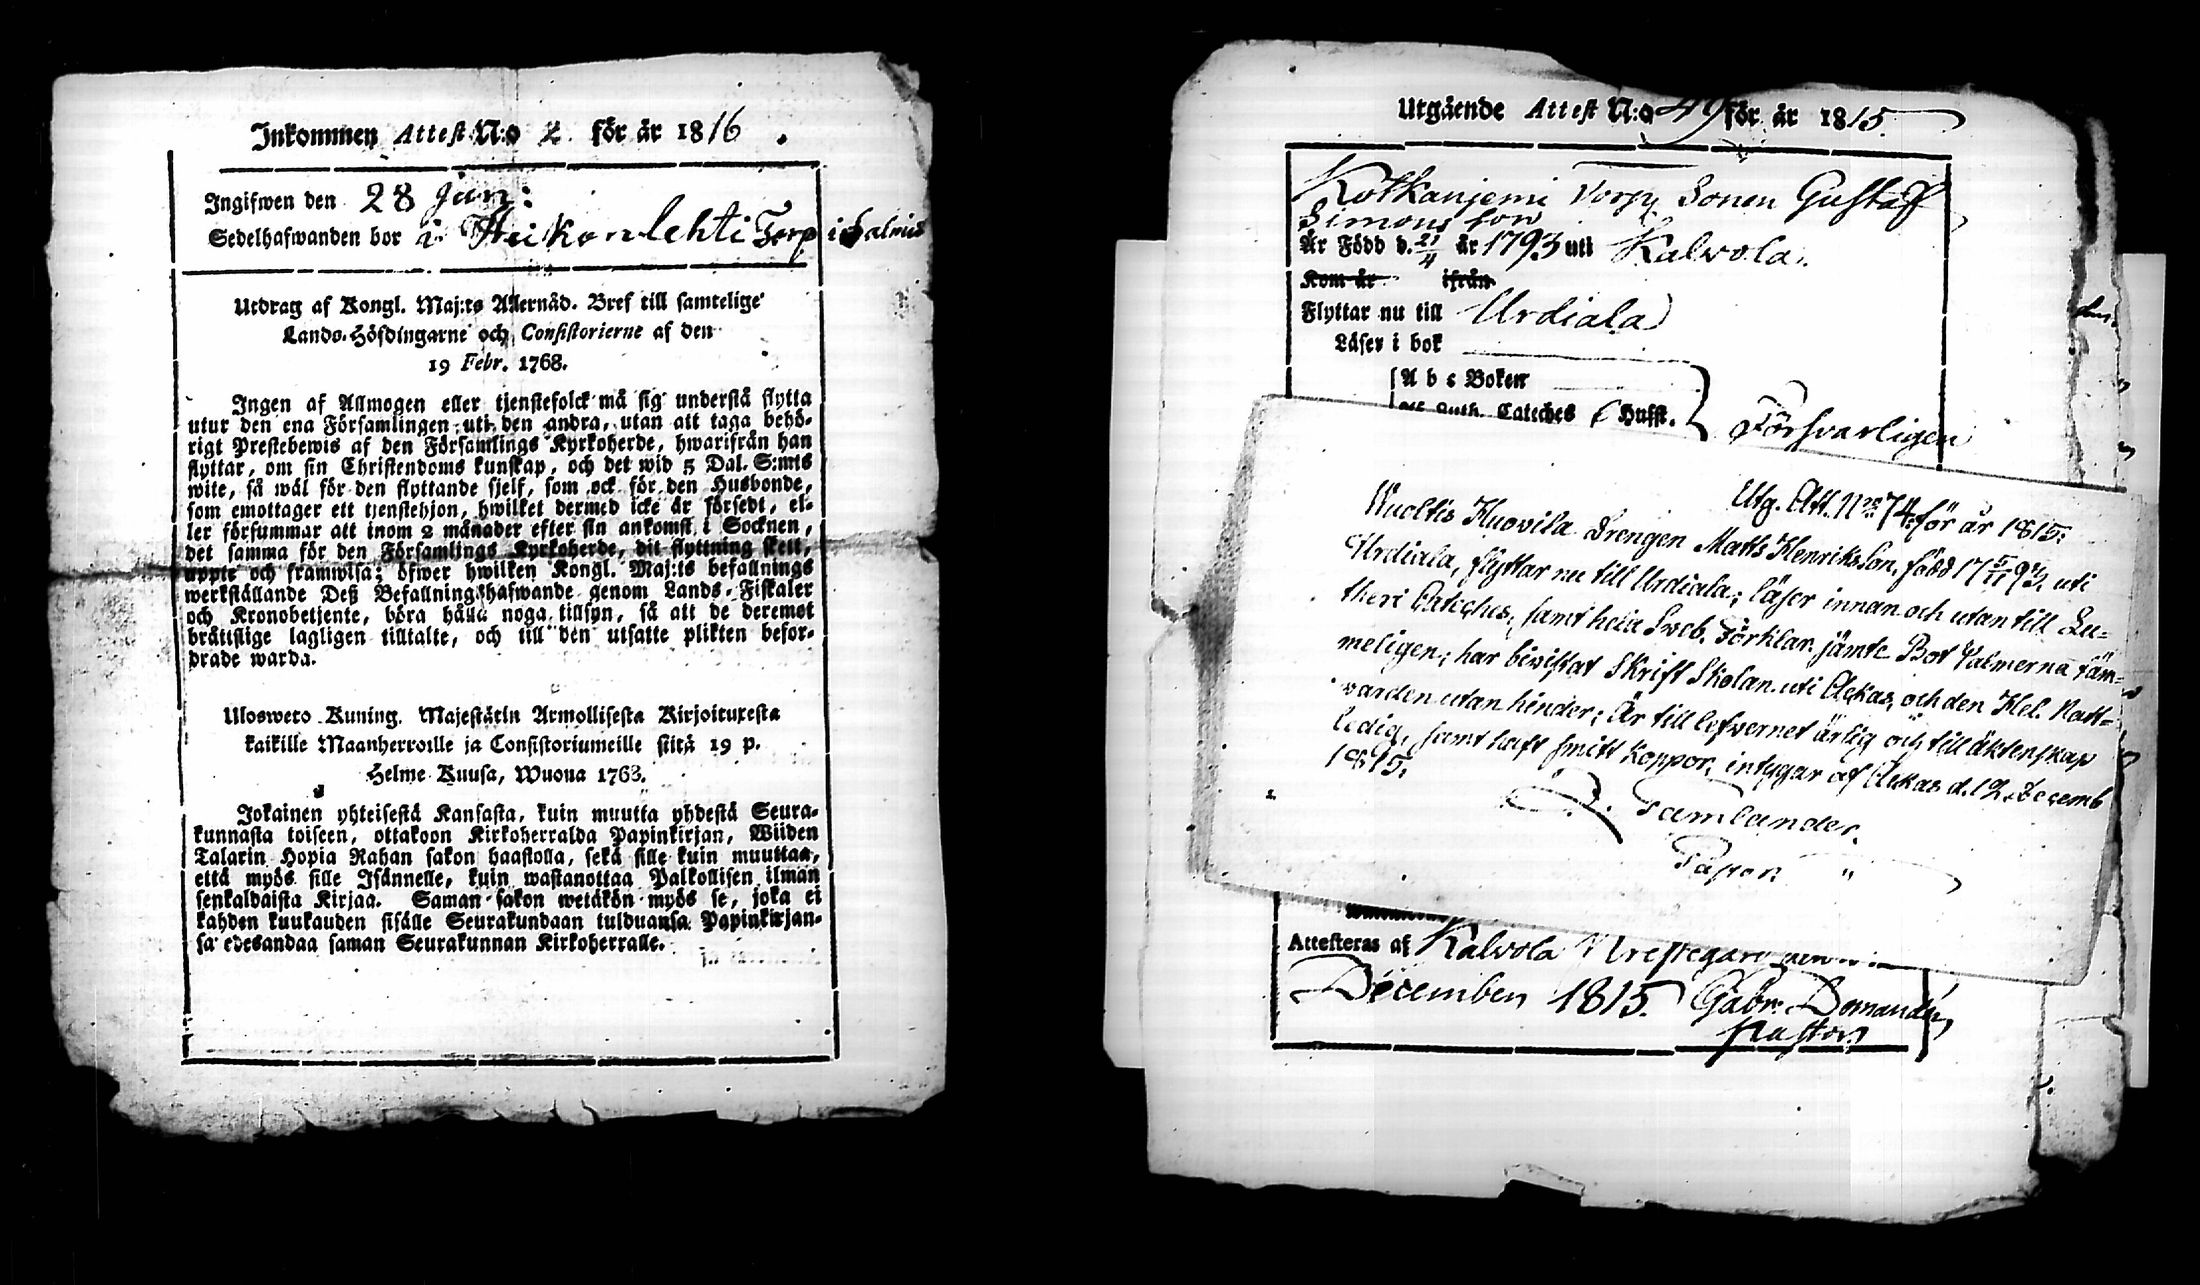 Inkommen Attest N:o 2 för år 1816.
Ingifwen den 28 Jun:
Sedelhafwanden bor i Heikonlehti Torp i Salmis
Utdrag af Kongl. Maj:ts Allernåd. Bref till samtelige
Lands-Höfdingarne och Consistorierne af den
19 Febr. 1768.
Ingen af Allmogen eller tjenstefolck må sig understå flytta
utur den ena Församlingen uti den andra, utan att taga behö-
rigt Prestebewis af den Församlings Kyrkoherde, hwarifrån han
flyttar, om sin Christendoms kunskap, och det wid 5 Dal. S:mts
wite, så wäl för den flyttande sjelf, som ock för den Husbonde,
som emottager ett tjenstehjon, hwilket dermed icke är försedt, el-
ler försummar att inom 2 månader efter sin ankomst i Socknen,
det samma för den Församlings Kyrkoherde, dit flyttning skett,
uppte och framwisa; öfwer hwilken Kongl. Maj:ts befallnings
werkställande Deß Befallningshafwande genom Lands-Fiskaler
och Kronobetjente, böra hålla noga tillsyn, så att de deremot
bråttslige lagligen tilltalte, och till den utsatte plikten befor-
drade warda.
Ulosweto Kuning. Majestätin Armollisesta Kirjoituxesta
kaikille Maanherroille ja Consistoriumeille siitä 19 p.
Helme Kuusa, Wuona 1768.
Jokainen yhteisestä Kansasta, kuin muutta yhdestä Seura-
kunnasta toiseen, ottakoon Kirkoherralda Papinkirjan, Wiiden
Talarin Hopia Rahan sakon haastolla, sekä sille kuin muuttaa,
että myös sille Isännelle, kuin wastanottaa Palkollisen ilman
senkaldaista Kirjaa. Saman sakon wetäkön myös se, joka ei
kahden kuukauden sisälle Seurakundaan tulduansa Papinkirjan-
sa edesandaa saman Seurakunnan Kirkoherralle.
Utgående Attest N:o 49 för år 1815.
Kotkanjemi Torp Sonen Gustaf
Simons son
Är Född d. 21/4 år 1793 uti Kalvola.
Kom år ifrån
Flyttar nu till Urdiala
Läser i bok
A b c Boken
Cateches Hufst. Försvarligen
Utg. Att. N:o 74 för år 1815.
Nuoltis Kuovila Drengen Matts Henriksson, född 17 5/11 93 uti
Urdiala, flyttar nu till Urdiala; läser innan och utan till Lu-
theri Catiches, samt hela Sweb. Förklar. jämte Bot Psalmerna täm-
meligen; har biwistat Skrift Skolan uti Ackas, och den Hel. Natt-
warden utan hinder; Är till lefwernet ärlig och till äktenskap
ledig, samt haft smitt koppor, intygar af Ackas d. 12 Decemb
1815.
Tamlander.
Pastor.
Attesteras af Kalvola Prestegård den
December 1815. Gabr. Domander
Pastor